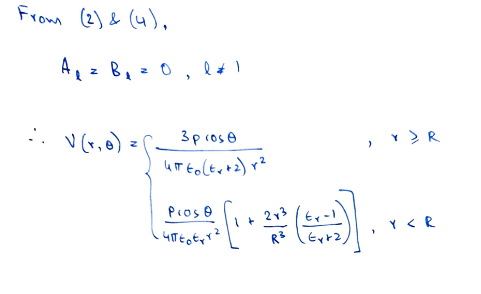 From (2) & (4),
A_l = B_l = 0 , l ≠ 1
∴ V(r,θ) = { 3pcosθ / 4πε₀(εᵣ+2) r² , r ≥ R
pcosθ / 4πε₀εᵣr² [ 1 + 2r³/R³ ( εᵣ-1 / εᵣ+2 ) ] , r < R